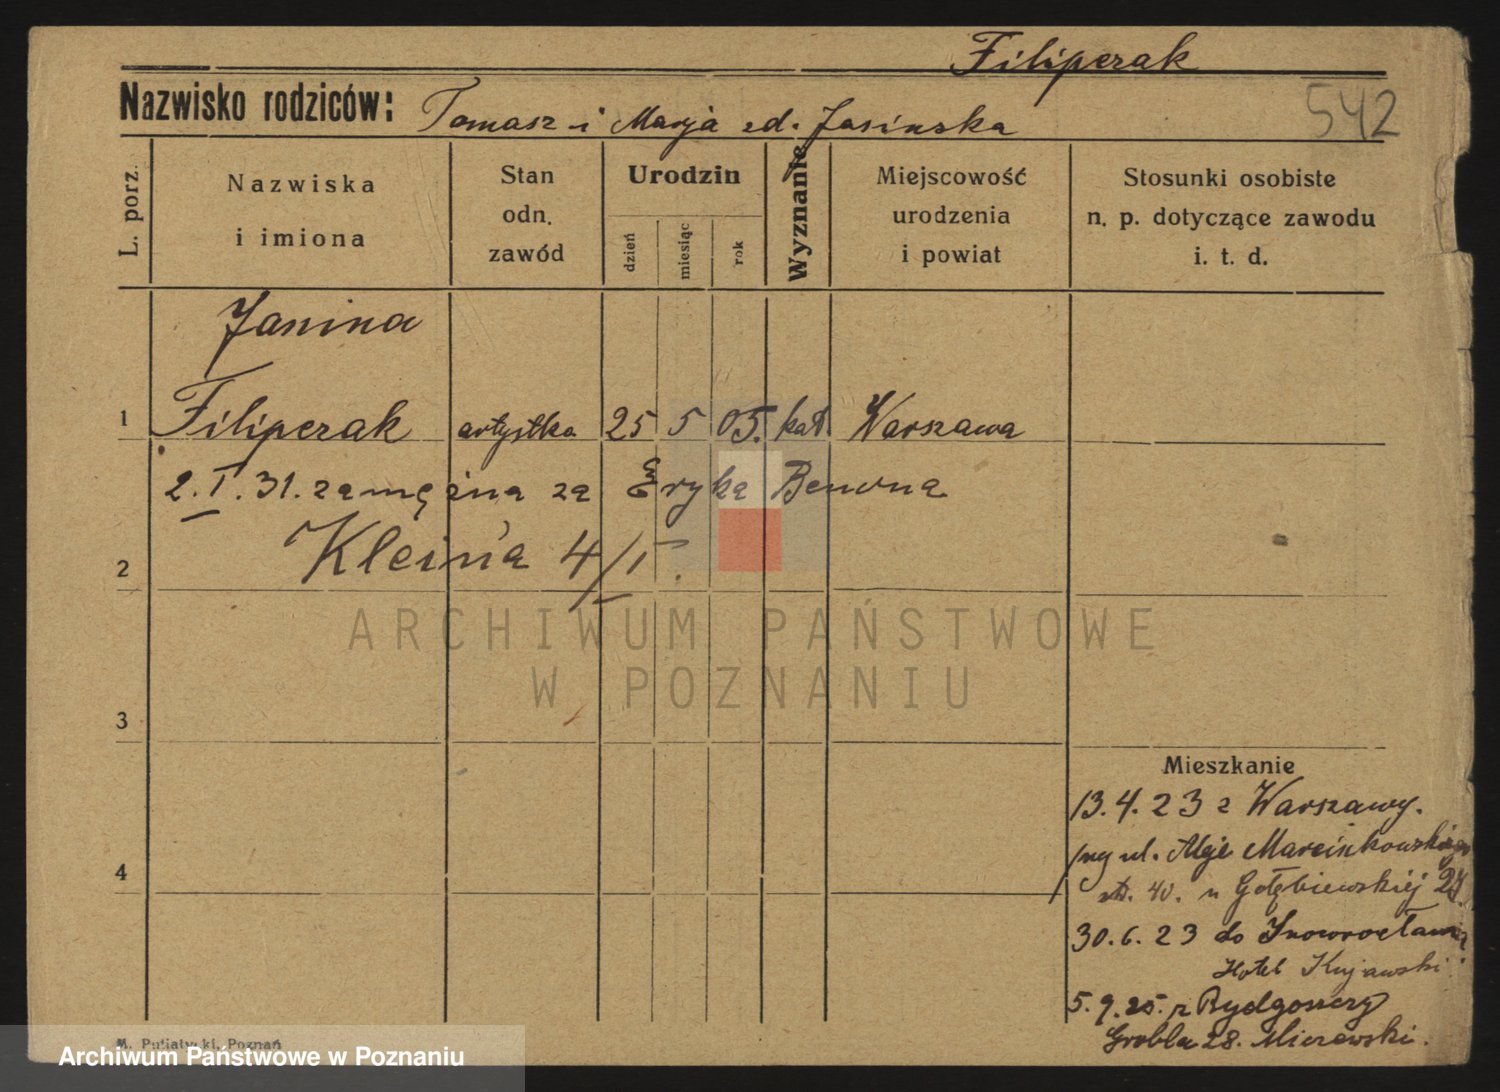 Filipczak
542
Nazwisko rodziców: Tomasz i Marja zd. Jasinska
L. porz.
Nazwiska
i imiona
Stan
odn.
zawód
Urodzin
dzień
miesiąc
rok
Wyznanie
Miejscowość
urodzenia
i powiat
Stosunki osobiste
n. p. dotyczące zawodu
i. t. d.
Janina
1 Filipczak artystka 25 5 05. kat. Warszawa
2. I. 31. zamężna za Eryka Benona
2 Kleina 4/I.
ARCHIWUM PAŃSTWOWE
W POZNANIU
3
Mieszkanie
13.4.23 z Warszawy.
ul. Aleje Marcinkowskiego
4
40. u Gołębiewskiej 27.
30.6.23 do Inowrocławia
Hotel Kujawski
5.9.25. z Bydgoszczy
Grobla 28. Mizewski.
M. Putiatycki, Poznań
Archiwum Państwowe w Poznaniu